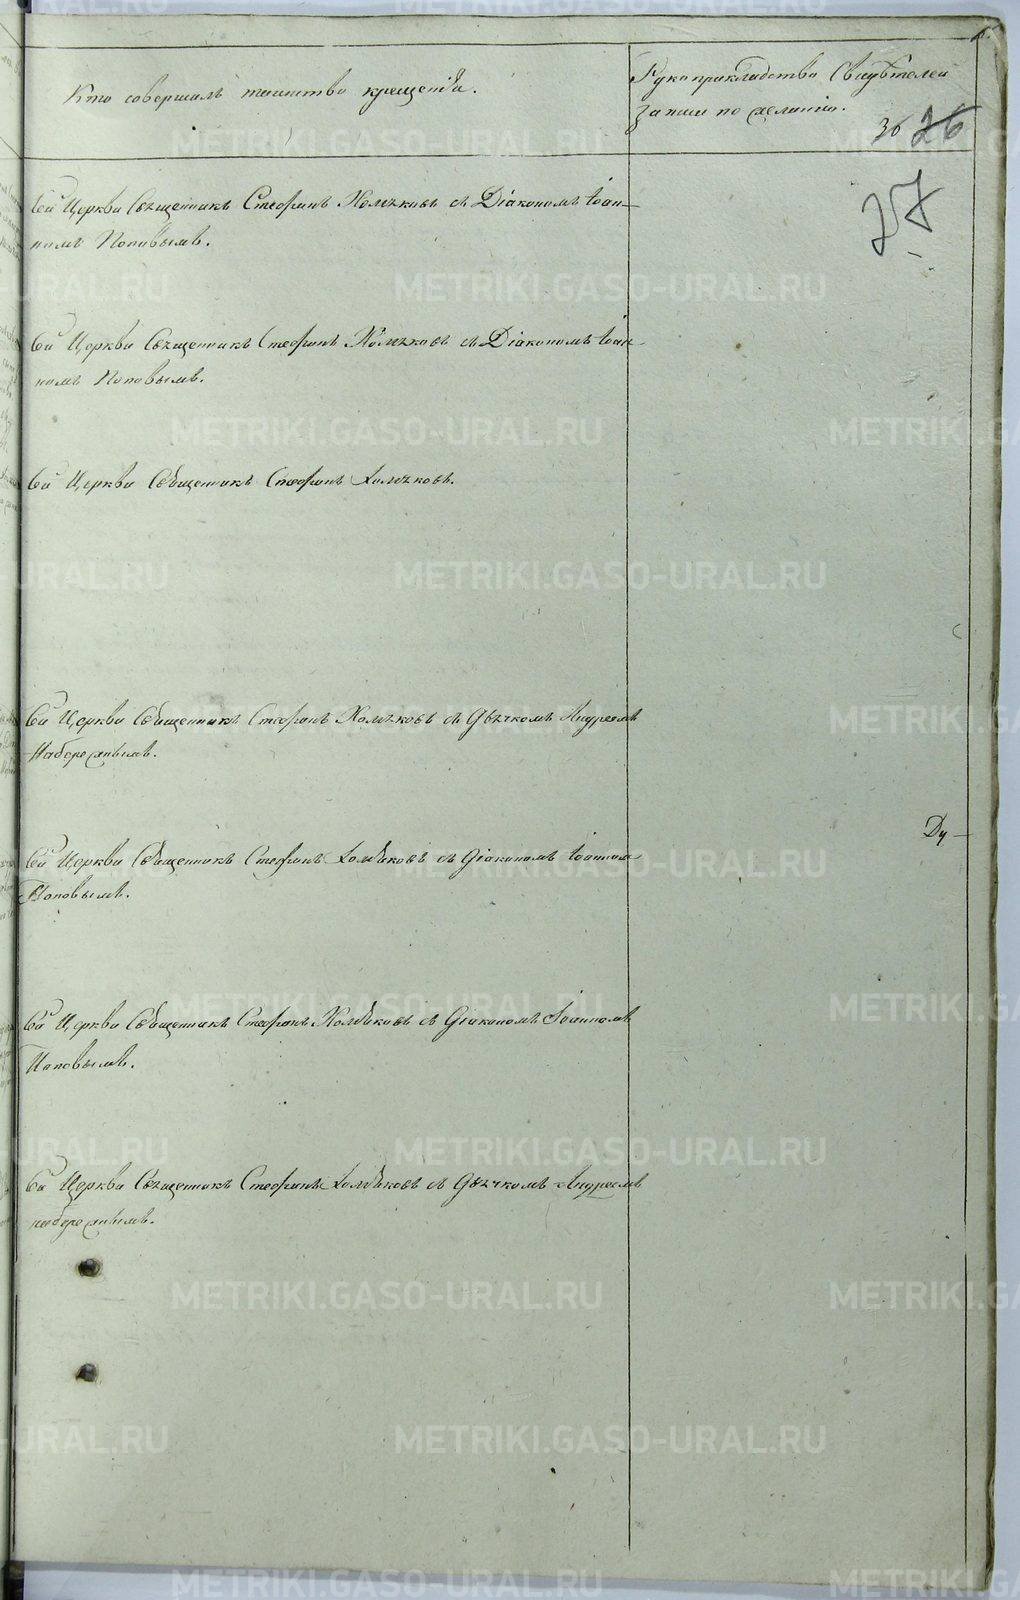 Кто совершалъ таинство крещенія.
Рукоприкладство Свидѣтелей
записи по желанію.
36 26
27
Сей Церкви Священникъ Стефанъ Холмковъ съ Діакономъ Іоан-
номъ Поповымъ.
Сей Церкви Священникъ Стефанъ съ Діакономъ Іоан-
номъ Поповымъ.
Сей Церкви Священникъ Стефанъ
Сей Церкви Священникъ Стефанъ съ Дьячкомъ Андреемъ
Набережнымъ.
Ду-
Сей Церкви Священникъ Стефанъ съ Діакономъ Іоанном
Поповымъ.
Сей Церкви Священникъ Стефанъ съ Діакономъ Іоанномъ
Поповымъ.
Сей Церкви Священникъ Стефанъ съ Дьячкомъ Андреемъ
набережнымъ.
METRIKI.GASO-URAL.RU